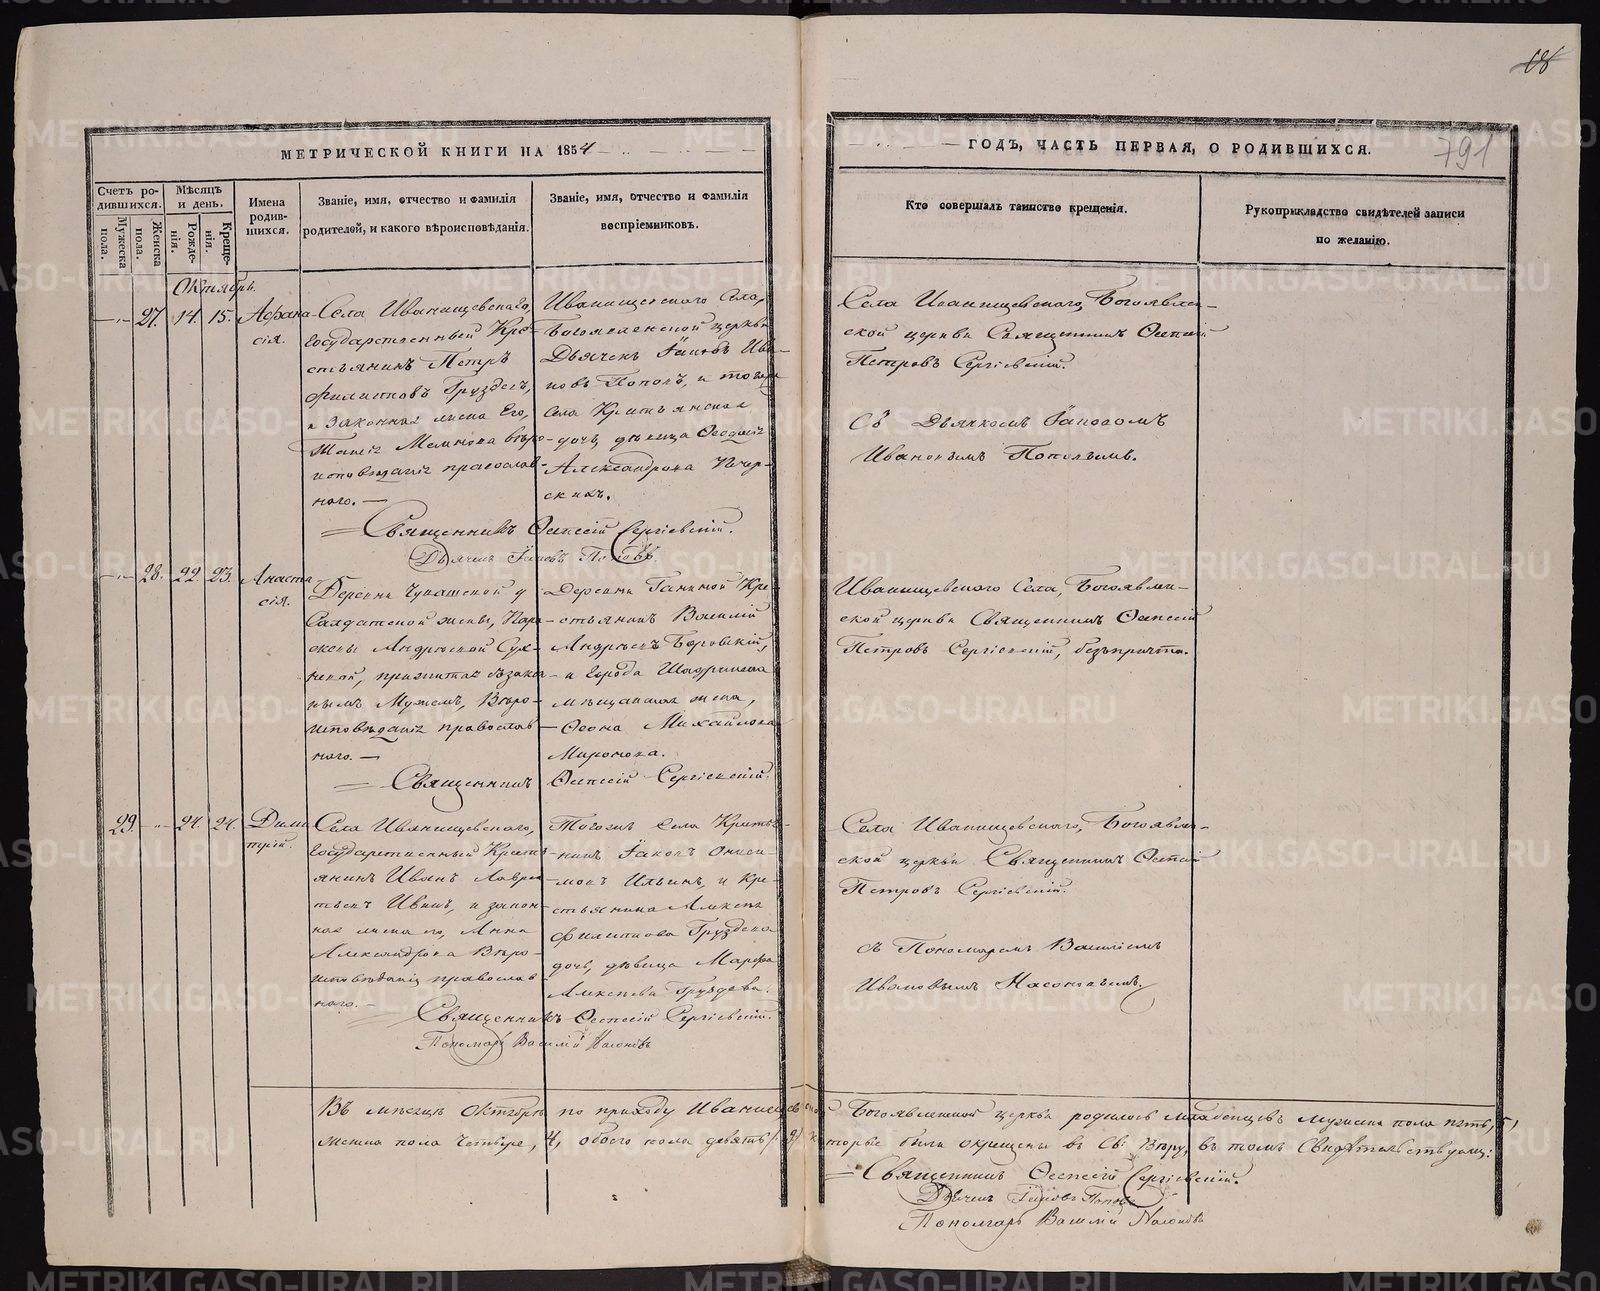 18
791
МЕТРИЧЕСКОЙ КНИГИ НА 1854
ГОДЪ, ЧАСТЬ ПЕРВАЯ, О РОДИВШИХСЯ.
Счетъ ро-
дившихся.
Мужеска
пола.
Женска
пола.
Мѣсяцъ
и день.
Рожде-
нія.
Креще-
нія.
Имена
родив-
шихся.
Званіе, имя, отчество и фамилія
родителей, и какого вѣроисповѣданія.
Званіе, имя, отчество и фамилія
воспріемниковъ.
Кто совершалъ таинство крещенія.
Рукоприкладство свидѣтелей записи
по желанію.
Октябрь.
27. 14. 15. Афана-
сія.
Села Иванищевскаго,
Государственный Кре-
стьянинъ Петръ
Филиповъ Груздевъ,
и законная жена Его,
вѣро-
исповѣданія православ-
наго. —
Иванищевскаго Села,
Богоявленской церкви
Дьячекъ Іаковъ Ива-
новъ Поповъ, и тогоже
Села Крестьянская
дочь дѣвица
Александрова Печер-
скихъ.
Села Иванищевскаго, Богоявлен-
ской церкви Священникъ
Петровъ Сергіевскій.
Съ Дьячкомъ Іаковомъ
Ивановымъ Поповымъ.
Священникъ Сергіевскій.
Дьячекъ Іаковъ Поповъ
28. 22. 23. Анаста-
сія.
Деревни у
Салдатской жены, Пара-
скевы Андреевой
прижитая
Мужемъ, Вѣро-
исповѣданія православ-
наго. —
Деревни Ганиной Кре-
стьянинъ Василій
Андреевъ Боровскій,
и Города Шадринска
мѣщанская жена,
Михайлова
Миронова.
Иванищевскаго Села, Богоявлен-
ской церкви Священникъ
Петровъ Сергіевскій, безъ причта.
Священникъ Сергіевскій.
29. 24. 24. Дими-
трій.
Села Иванищевскаго,
Государственный Кресть-
янинъ Иванъ Лаврен-
тьевъ и закон-
ная жена его, Анна
Александрова Вѣро-
исповѣданія православ-
наго. —
Тогожъ Села Кресть-
нинъ Іаковъ Ониси-
мовъ Ильинъ, и Кре-
стьянина Алексѣя
Филипова Груздева
дочь, дѣвица Марфа
Алексѣева Груздева.
Села Иванищевскаго, Богоявлен-
ской церкви Священникъ
Петровъ Сергіевскій.
съ Пономаремъ Василіемъ
Ивановымъ Насоновымъ.
Священникъ Сергіевскій.
Пономарь Василій Насоновъ
Въ мѣсяцѣ Октябрѣ по приходу Иванищевской Богоявленской церкви родилось младенцевъ мужска пола пять, 5,
женска пола четыре, 4, обоего пола девять, 9, которые были окрещены въ Св: Вѣру, въ томъ Свидѣтельствуемъ:
Священникъ Сергіевскій.
Дьячекъ Іаковъ Поповъ
Пономарь Василій Насоновъ
METRIKI.GASO-URAL.RU